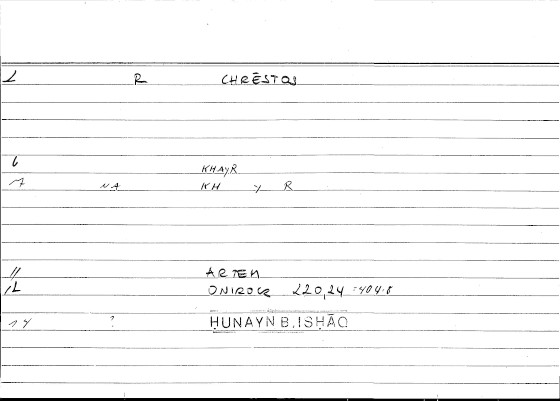 L R CHRĒSTOS
6 KHAYR
7 NA KH Y R
11 ARTEM
12 ONIROCR 220,24 = 404.8
14 ? ḤUNAYN B. ISḤĀQ